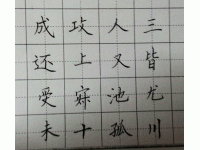 成攻人三
还上又皆
受寐池尤
未十孤川